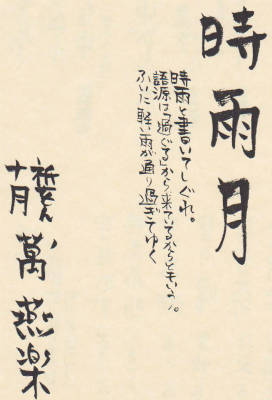 時雨月
時雨と書いてしぐれ。
語源は「過ぐる」から来ているからともいう。
ふいに軽い雨が通り過ぎてゆく
祇をん
十月
萬燕楽